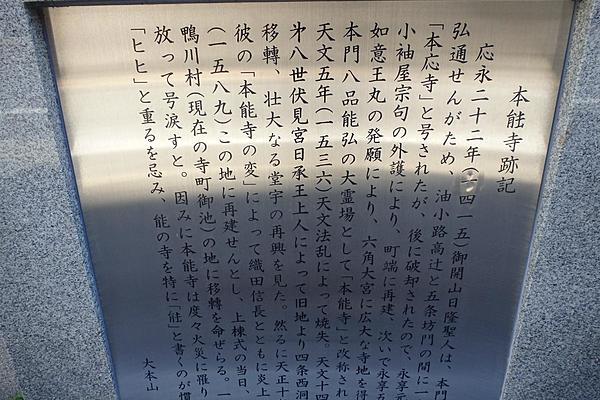 本䏻寺跡記
応永二十二年（一四一五）御開山日隆聖人は、本門
弘通せんがため、油小路高辻と五条坊門の間に一
「本応寺」と号されたが、後に破却されたので、永享元
小袖屋宗句の外護により、町端に再建、次いで永享五
如意王丸の発願により、六角大宮に広大な寺地を得
本門八品能弘の大霊場として「本能寺」と改称され
天文五年（一五三六）天文法乱によって焼失。天文十四
㐧八世伏見宮日承王上人によって旧地より四条西洞
移轉、壮大なる堂宇の再興を見た。然るに天正十
彼の「本能寺の変」によって織田信長とともに炎上
（一五八九）この地に再建せんとし、上棟式の当日、
鴨川村（現在の寺町御池）の地に移轉を命ぜらる。一
放って号涙すと。因みに本能寺は度々火災に罹り
「ヒヒ」と重るを忌み、能の寺を特に「䏻」と書くのが慣
大本山